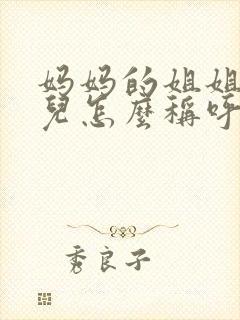 妈妈的姐姐
兒怎麼稱呼
秀良子